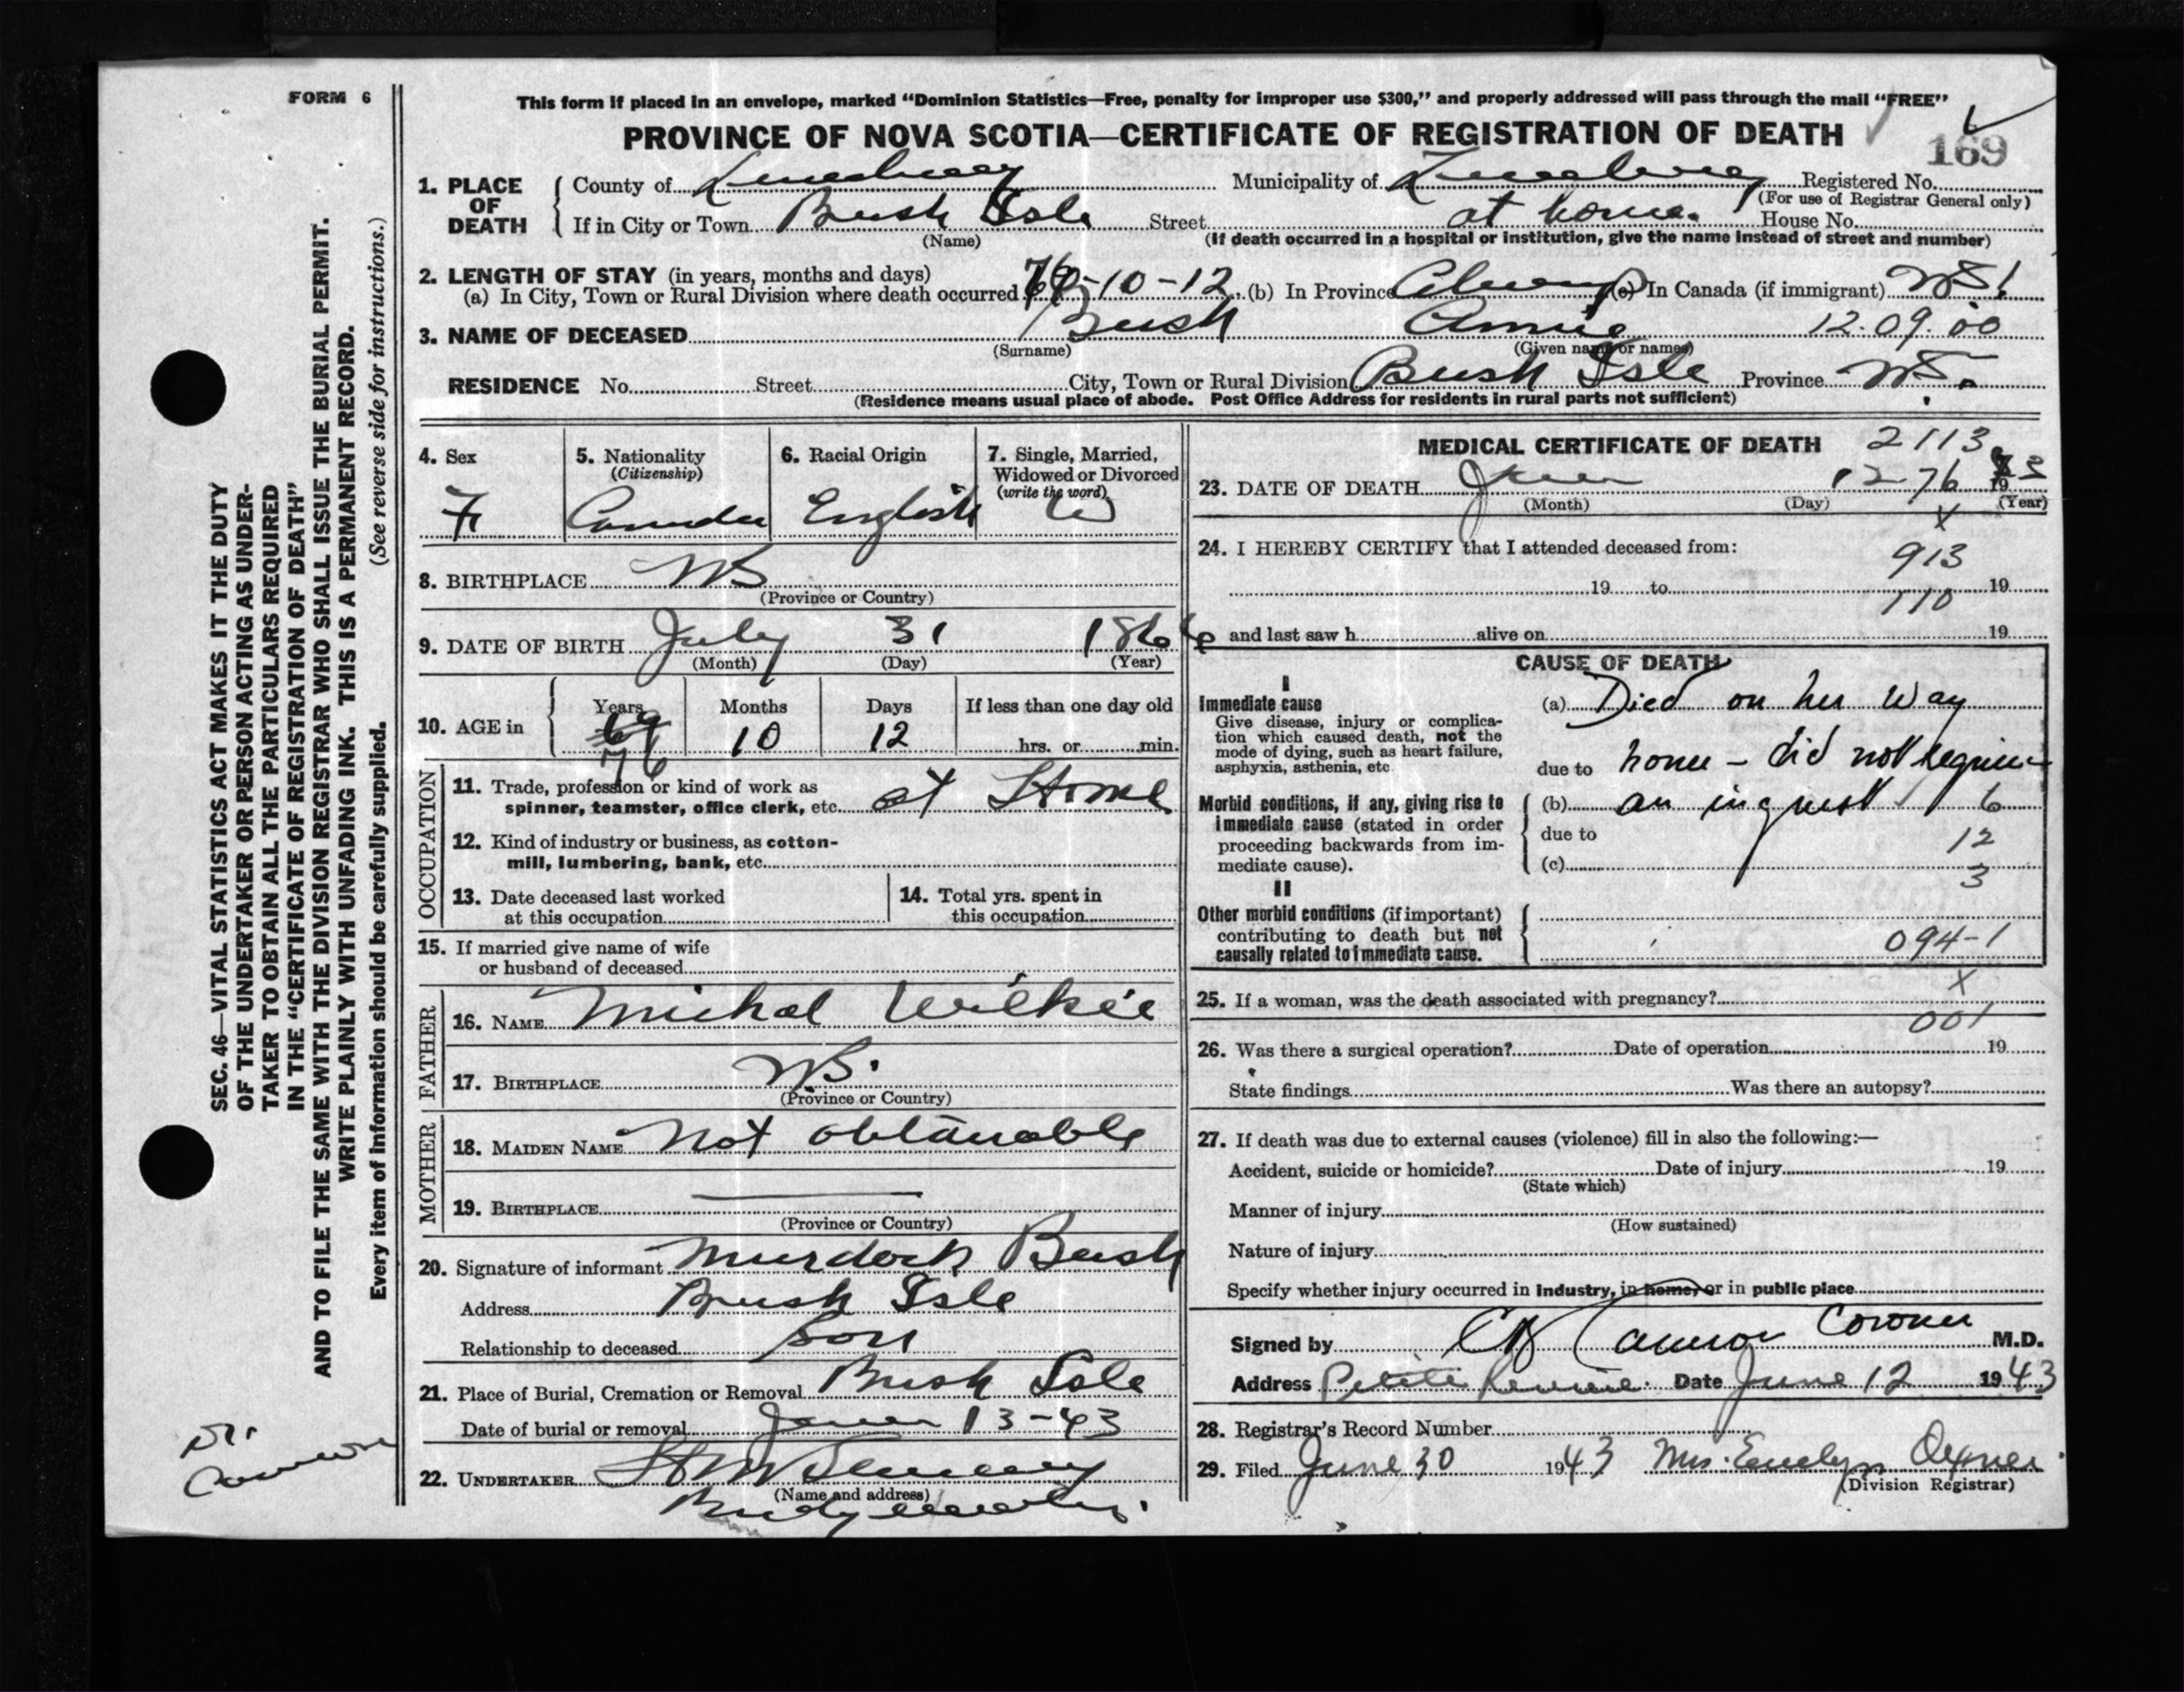 FORM 6
This form if placed in an envelope, marked “Dominion Statistics—Free, penalty for improper use $300,” and properly addressed will pass through the mail “FREE”
PROVINCE OF NOVA SCOTIA—CERTIFICATE OF REGISTRATION OF DEATH
169
1. PLACE OF DEATH
County of Lunenburg Municipality of Lunenburg Registered No.
(For use of Registrar General only)
If in City or Town Bush Isle Street at home. House No.
(Name)
(If death occurred in a hospital or institution, give the name instead of street and number)
2. LENGTH OF STAY (in years, months and days)
(a) In City, Town or Rural Division where death occurred 76-10-12 (b) In Province Always (c) In Canada (if immigrant) NS.
3. NAME OF DECEASED Bush Annie 12.09.00
(Surname) (Given name or names)
RESIDENCE No. Street City, Town or Rural Division Bush Isle Province NS.
(Residence means usual place of abode. Post Office Address for residents in rural parts not sufficient)
4. Sex
F
5. Nationality
(Citizenship)
Canada
6. Racial Origin
English
7. Single, Married,
Widowed or Divorced
(write the word)
W
8. BIRTHPLACE NS
(Province or Country)
9. DATE OF BIRTH July 31 1866
(Month) (Day) (Year)
10. AGE in
Years Months Days If less than one day old
69 10 12 hrs. or min.
76
OCCUPATION
11. Trade, profession or kind of work as
spinner, teamster, office clerk, etc. at Home
12. Kind of industry or business, as cotton-
mill, lumbering, bank, etc.
13. Date deceased last worked
at this occupation
14. Total yrs. spent in
this occupation
15. If married give name of wife
or husband of deceased
FATHER
16. NAME Michal Wilkie
17. BIRTHPLACE NS.
(Province or Country)
MOTHER
18. MAIDEN NAME Not obtanable
19. BIRTHPLACE
(Province or Country)
20. Signature of informant Murdoch Bush
Address Bush Isle
Relationship to deceased Son
21. Place of Burial, Cremation or Removal Bush Isle
Date of burial or removal June 13-43
22. UNDERTAKER
(Name and address)
Bridgewater.
MEDICAL CERTIFICATE OF DEATH 2113
23. DATE OF DEATH June 12 76 19
(Month) (Day) (Year)
X
24. I HEREBY CERTIFY that I attended deceased from:
913
19 to 19
110
and last saw h alive on 19
CAUSE OF DEATH
I
Immediate cause
Give disease, injury or complica-
tion which caused death, not the
mode of dying, such as heart failure,
asphyxia, asthenia, etc
(a) Died on her way
due to home - did not require
Morbid conditions, if any, giving rise to
immediate cause (stated in order
proceeding backwards from im-
mediate cause).
(b) an inquest 6
due to 12
(c)
3
II
Other morbid conditions (if important)
contributing to death but not
causally related to immediate cause.
094-1
X
25. If a woman, was the death associated with pregnancy?
001
26. Was there a surgical operation? Date of operation 19
State findings Was there an autopsy?
27. If death was due to external causes (violence) fill in also the following:—
Accident, suicide or homicide? Date of injury 19
(State which)
Manner of injury
(How sustained)
Nature of injury
Specify whether injury occurred in industry, in home, or in public place
Signed by Cameron Coroner M.D.
Address Petite Riviere. Date June 12 1943
28. Registrar's Record Number
29. Filed June 30 1943 Mrs. Emelyn Oxner
(Division Registrar)
SEC. 46—VITAL STATISTICS ACT MAKES IT THE DUTY
OF THE UNDERTAKER OR PERSON ACTING AS UNDER-
TAKER TO OBTAIN ALL THE PARTICULARS REQUIRED
IN THE “CERTIFICATE OF REGISTRATION OF DEATH”
AND TO FILE THE SAME WITH THE DIVISION REGISTRAR WHO SHALL ISSUE THE BURIAL PERMIT.
WRITE PLAINLY WITH UNFADING INK. THIS IS A PERMANENT RECORD.
Every item of information should be carefully supplied. (See reverse side for instructions.)
Dr.
Cameron